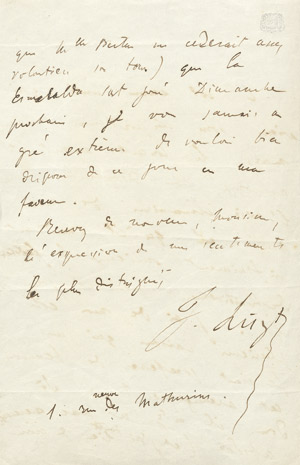 que Mlle Bertin me cèderait assez
volontiers son tour) que la
Esmeralda soit joué Dimanche
prochain, je vous saurais un
gré extrême de vouloir bien
disposer de ce jour en ma
faveur.
Recevez de nouveau, Monsieur,
l'expression de mes sentiments
les plus distingués
F. Liszt
neuve
1. rue des Mathurins.